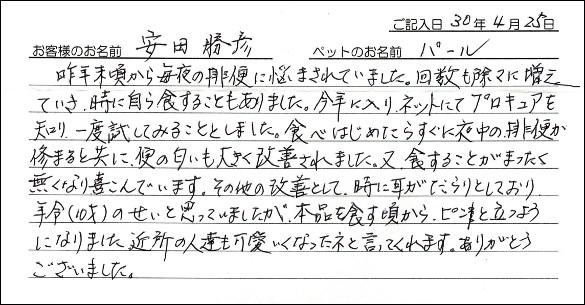 ご記入日 30年4月25日
お客様のお名前 安田勝彦 ペットのお名前 パール
昨年末頃から毎夜の排便に悩まされていました。回数も除々に増え
ていき、時に自ら食することもありました。今年に入り、ネットにてプロキュアを
知り、一度試してみることとしました。食べはじめたらすぐに夜中の排便が
修まると共に、便の匂いも大きく改善されました。又、食することがまったく
無くなり喜こんでいます。その他の改善として、時に耳がだらりとしており
年令(10才)のせいと思っていましたが、本品を食す頃から、ピンと立つよう
になりました。近所の人達も可愛いくなったネと言ってくれます。ありがとう
ございました。